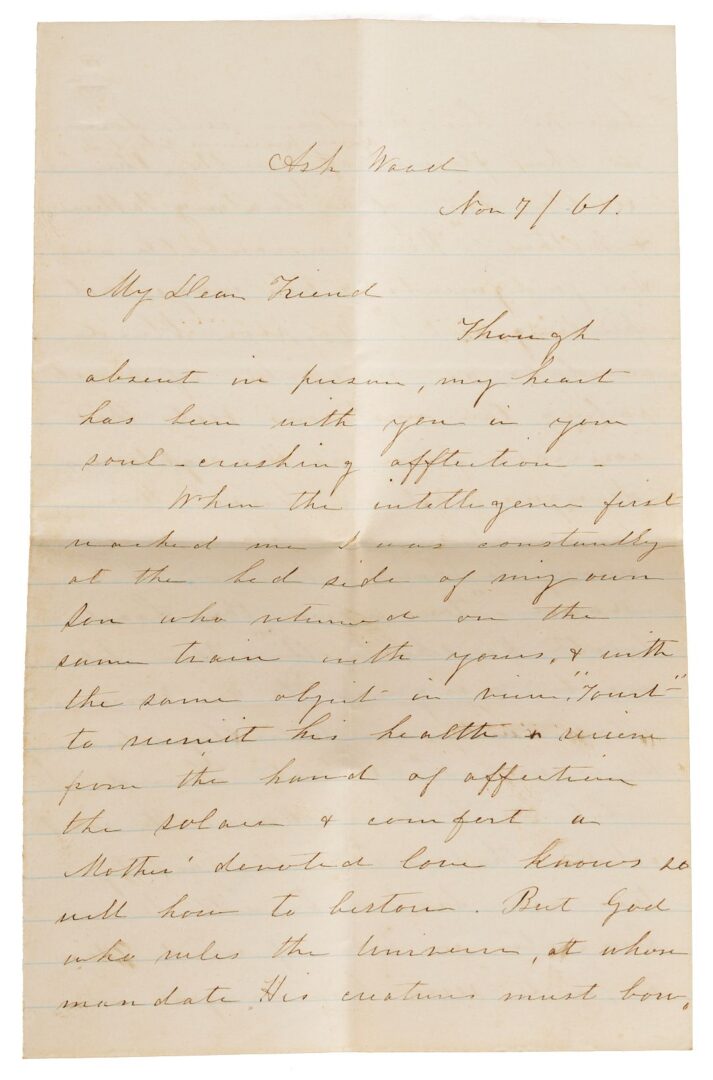 Ash Wood
Nov 7/61.
My Dear Friend
Though
absent in person, my heart
has been with you in your
soul-crushing affliction -
When the intelligence first
reached me I was constantly
at the bed side of my own
Son who returned on the
same train with yours, & with
the same object in view,
to recruit his health & receive
from the hand of affection
the solace & comfort a
Mother' devoted love knows so
well how to bestow. But God
who rules the Universe, at whose
mandate His creatures must bow,